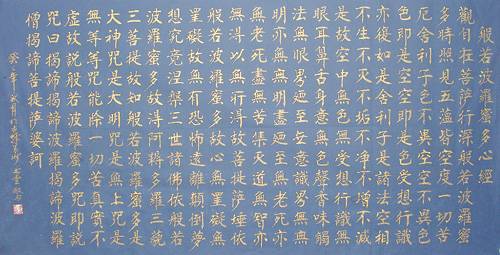 般若波羅蜜多心經
觀自在菩薩行深般若波羅蜜
多時照見五蘊皆空度一切苦
厄舍利子色不異空空不異色
色即是空空即是色受想行識
亦復如是舍利子是諸法空相
不生不灭不垢不净不增不減
是故空中無色無受想行識無
眼耳鼻舌身意無色聲香味觸
法無眼界廼至無意識界無無
明亦無無明盡廼至無老死亦
無老死盡無苦集灭道無智亦
無得以無所得故菩提薩埵依
般若波羅蜜多故心無罣礙無
罣礙故無有恐怖遠離顛倒夢
想究竟涅槃三世諸佛依般若
波羅蜜多故得阿耨多羅三藐
三菩提故知般若波羅蜜多是
大神咒是大明咒是無上咒是
無等等咒能除一切苦真實不
虛故說般若波羅蜜多咒即說
咒曰揭諦揭諦波羅揭諦波羅
僧揭諦菩提薩婆訶